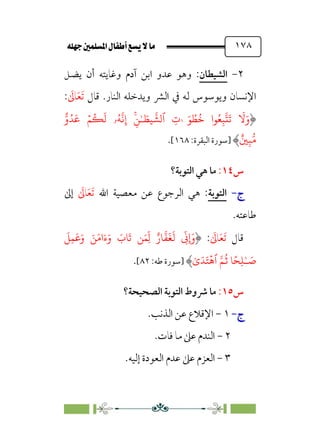 ١٧٨
ما لا يسع أطفال المسلمين جهله
٢- الشيطان: وهو عدو ابن آدم وغايته أن يضل
الإنسان ويوسوس له في الشر ويدخله النار. قال تَعَالَىٰ:
﴿وَلَا تَتَّبِعُوا خُطُوَٰتِ ٱلشَّيْطَٰنِ ۚ إِنَّهُۥ لَكُمْ عَدُوٌّ
مُّبِينٌ﴾ [سورة البقرة: ١٦٨].
س١٤: ما هي التوبة؟
ج- التوبة: هي الرجوع عن معصية الله تَعَالَىٰ إلى
طاعته.
قال تَعَالَىٰ: ﴿وَإِنِّى لَغَفَّارٌ لِّمَن تَابَ وَءَامَنَ وَعَمِلَ
صَٰلِحًا ثُمَّ ٱهْتَدَىٰ﴾ [سورة طه: ٨٢].
س١٥: ما شروط التوبة الصحيحة؟
ج- ١ - الإقلاع عن الذنب.
٢ - الندم على ما فات.
٣ - العزم على عدم العودة إليه.